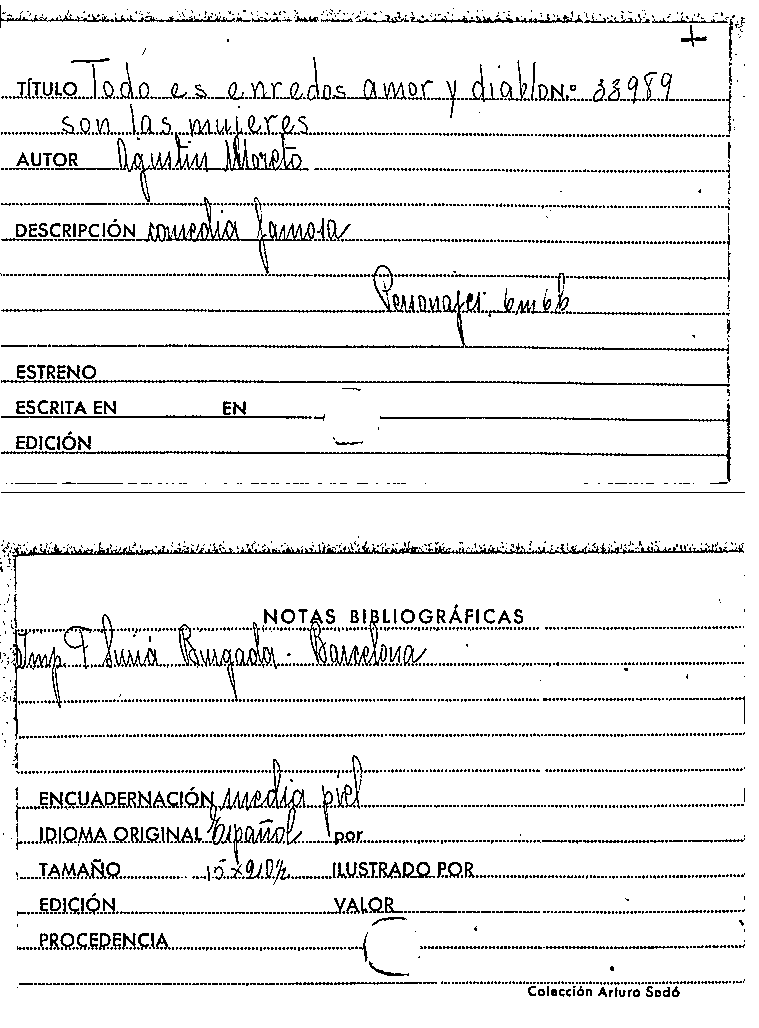 TÍTULO Todo es enredos amor y diablo N.º 33989
son las mujeres
AUTOR Agustin Moreto
DESCRIPCIÓN comedia famosa
Personajes, 6m 6h
ESTRENO
ESCRITA EN EN
EDICIÓN
NOTAS BIBLIOGRÁFICAS
Imp F Suriá Burgada - Barcelona
ENCUADERNACIÓN media piel
IDIOMA ORIGINAL Español por
TAMAÑO ILUSTRADO POR
EDICIÓN VALOR
PROCEDENCIA
Colección Arturo Sedó